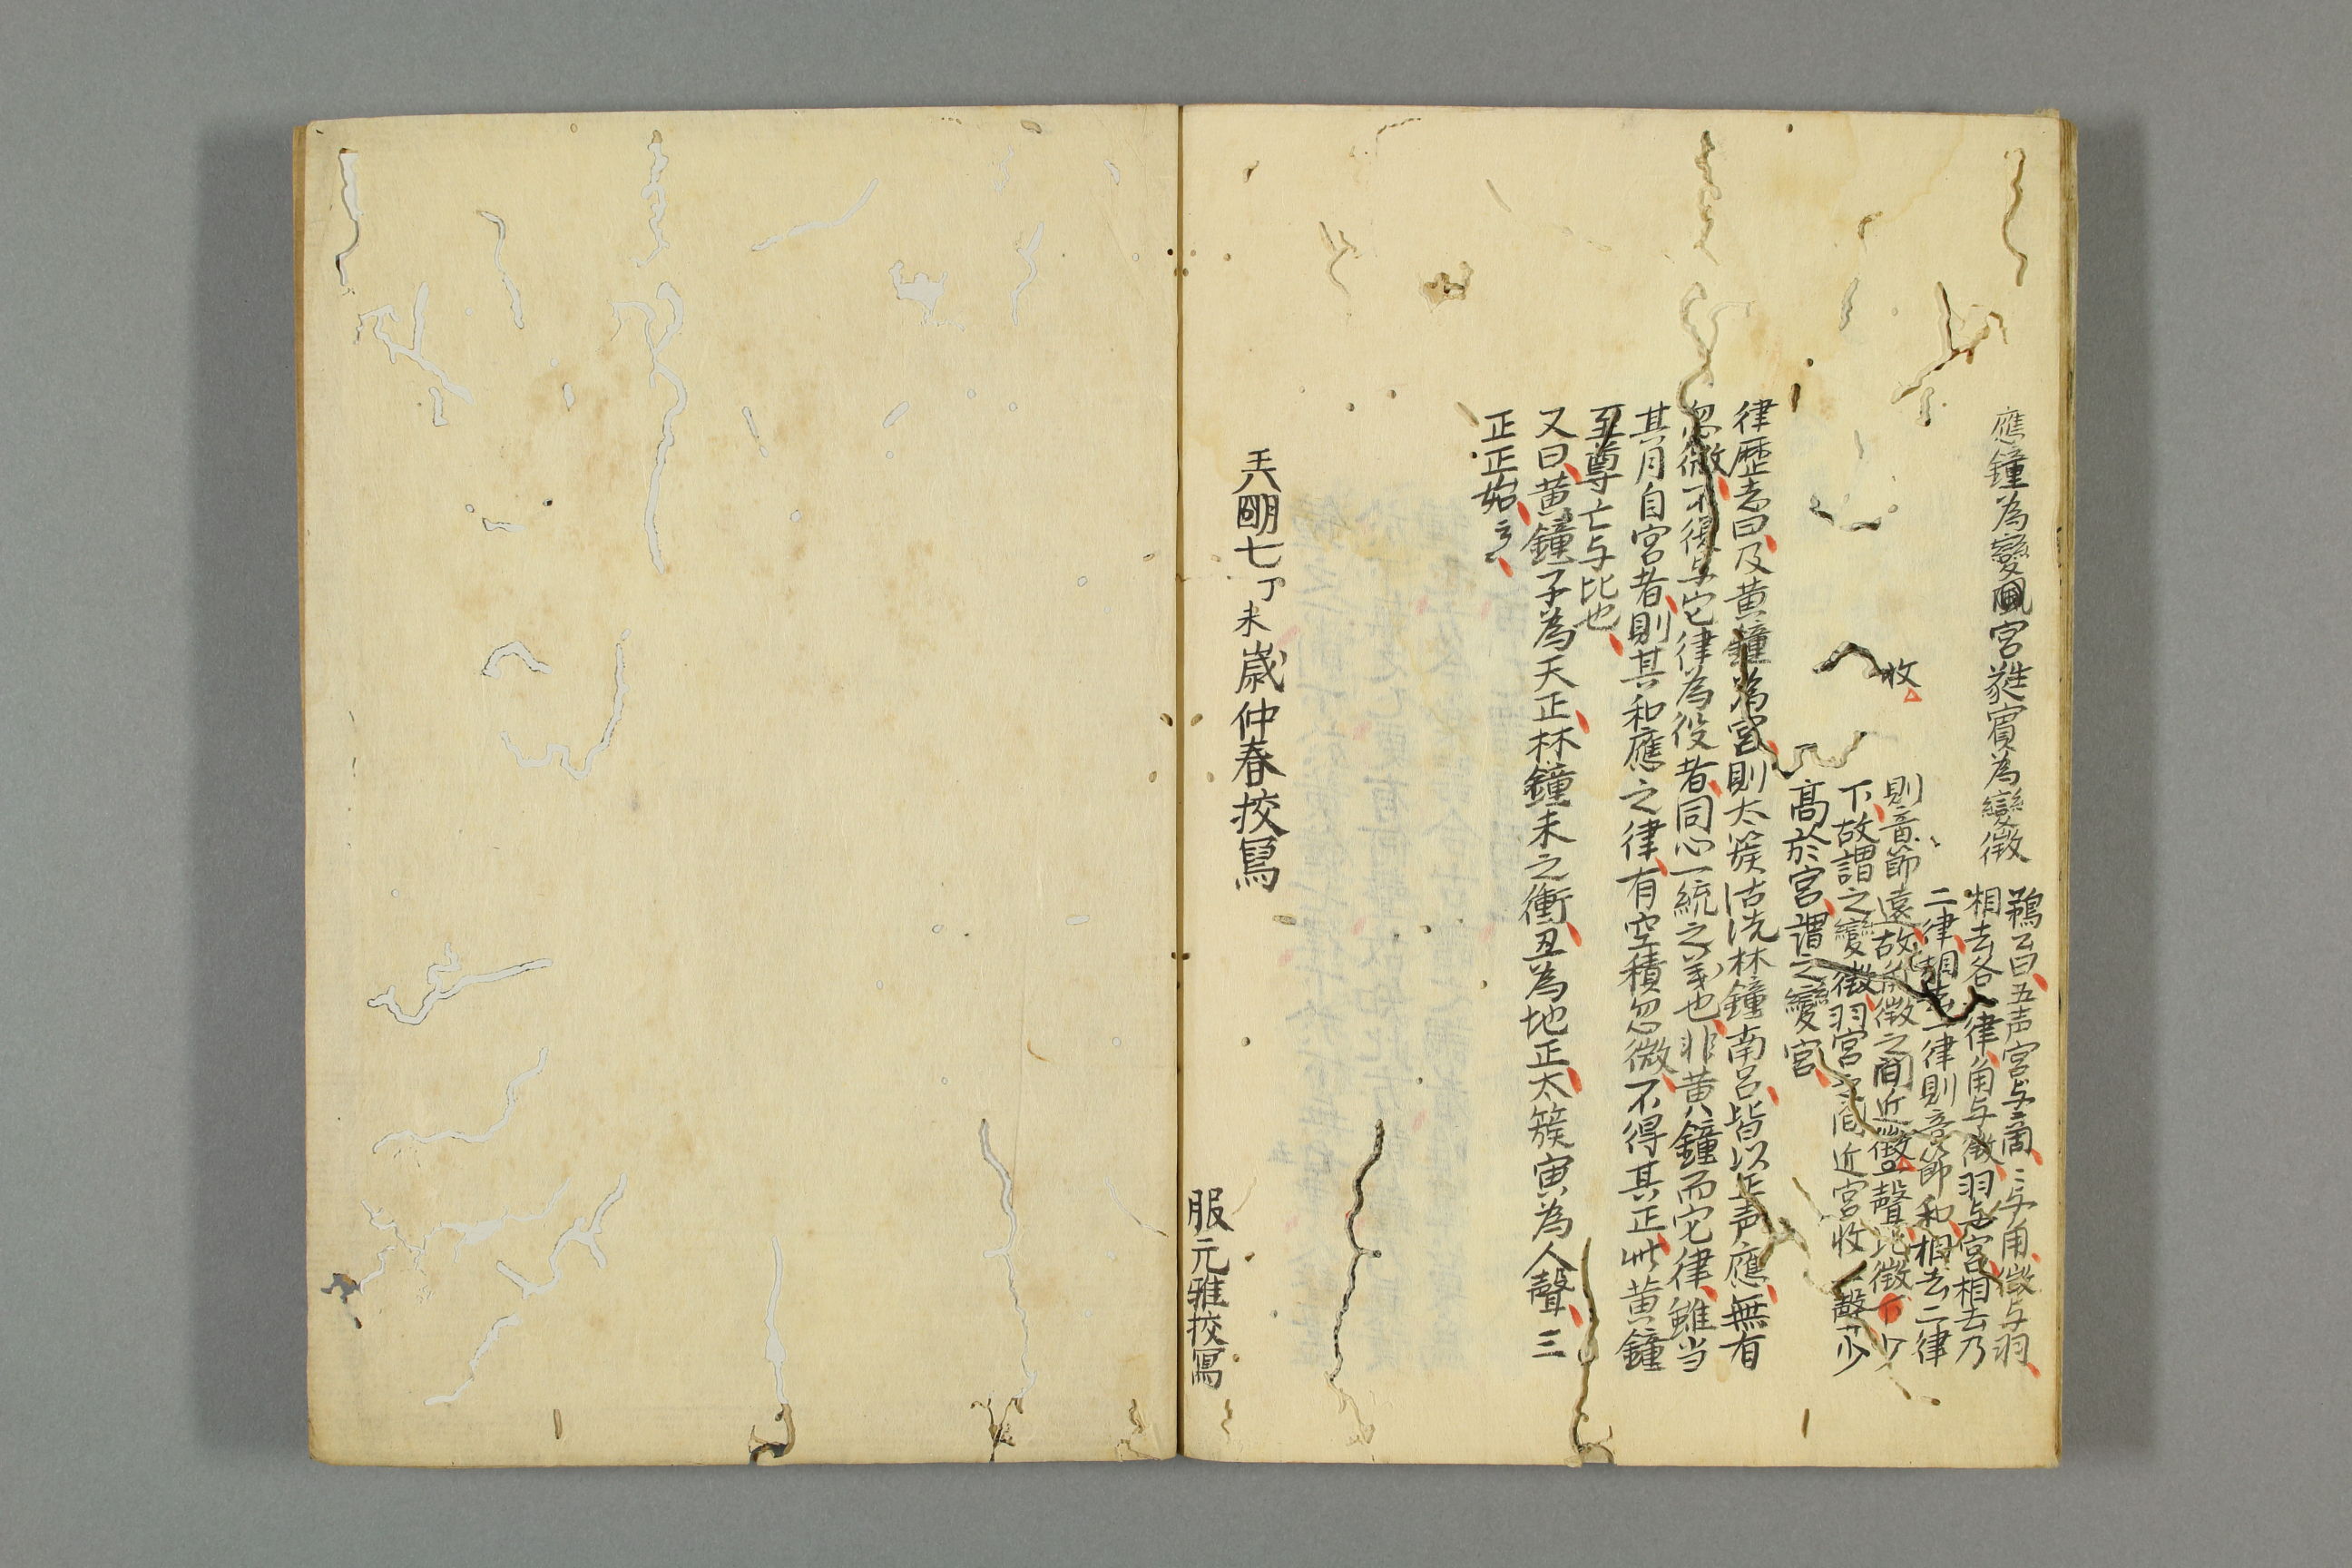 應鐘為變宮蕤賓為變徵
鵜云曰五声宮与商〻与角徵与羽
相去各一律角与徵羽与宮相去乃
二律相去一律則音節和相去二律
則音節遠故角徵之間近徵收聲比徵下少
下故謂之變徵羽宮之間近宮收一聲少
高於宮謂之變宮
收
律歴志曰及黄鐘為宮則太簇沽洗林鐘南呂皆以正声應無有
忽微不復与它律為役者同心一統之義也非黄鐘而它律雖当
其月自宮者則其和應之律有空積忽微不得其正此黄鐘
至尊亡与比也
又曰黄鐘子為天正林鐘未之衝丑為地正太簇寅為人聲三
正正始云〻
天明七丁未歳仲春挍寫
服元雅挍寫